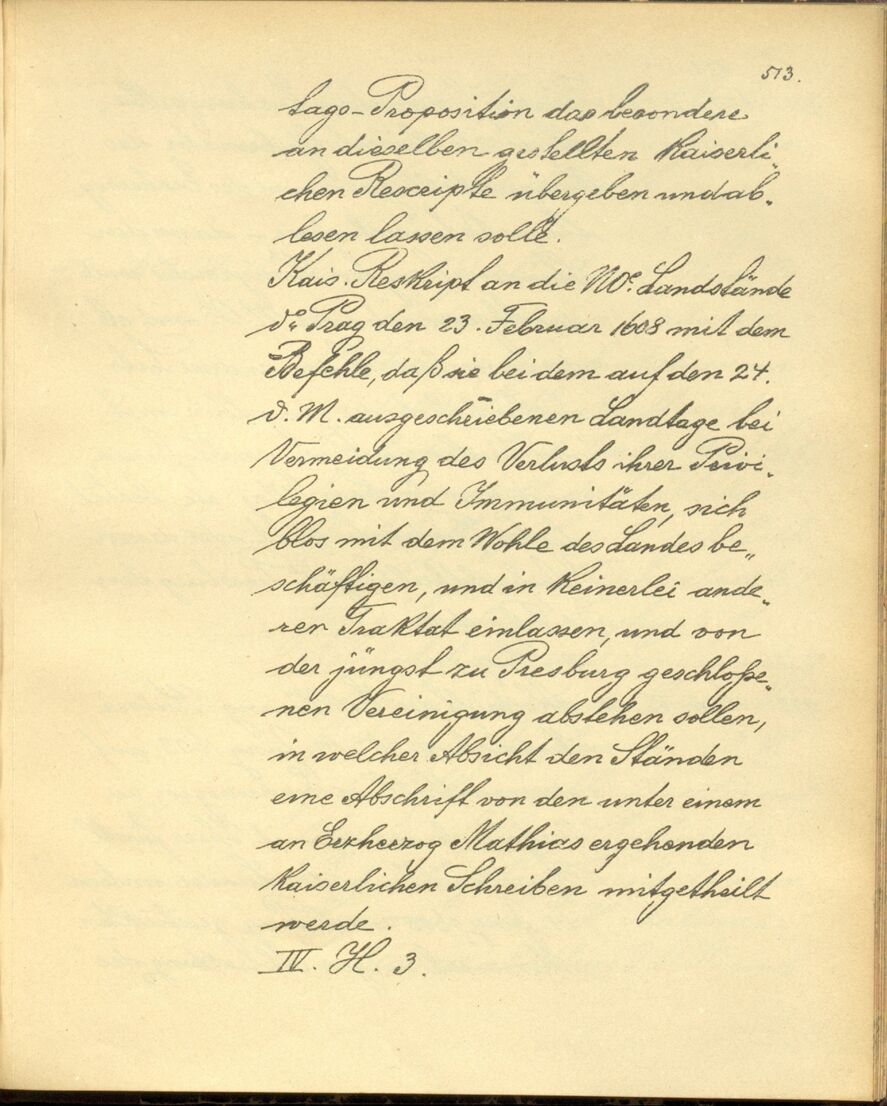 513.
tags-Proposition das besondere
an dieselben gestellten Kaiserli„
chen Rescripte übergeben und ab„
lesen lassen solle.
Kais. Reskript an die NÖ. Landstände
dº Prag den 23. Februar 1608 mit dem
Befehle, daß sie bei dem auf den 24.
d. M. ausgeschriebenen Landtage bei
Vermeidung des Verlusts ihrer Privi„
legien und Immunitäten, sich
blos mit dem Wohle des Landes be„
schäftigen, und in keinerlei ande„
rer Traktat einlassen, und von
der jüngst zu Presburg geschloße„
nen Vereinigung abstehen sollen,
in welcher Absicht den Ständen
eine Abschrift von den unter einem
an Erzherzog Mathias ergehenden
Kaiserlichen Schreiben mitgetheilt
werde.
IV. H. 3.